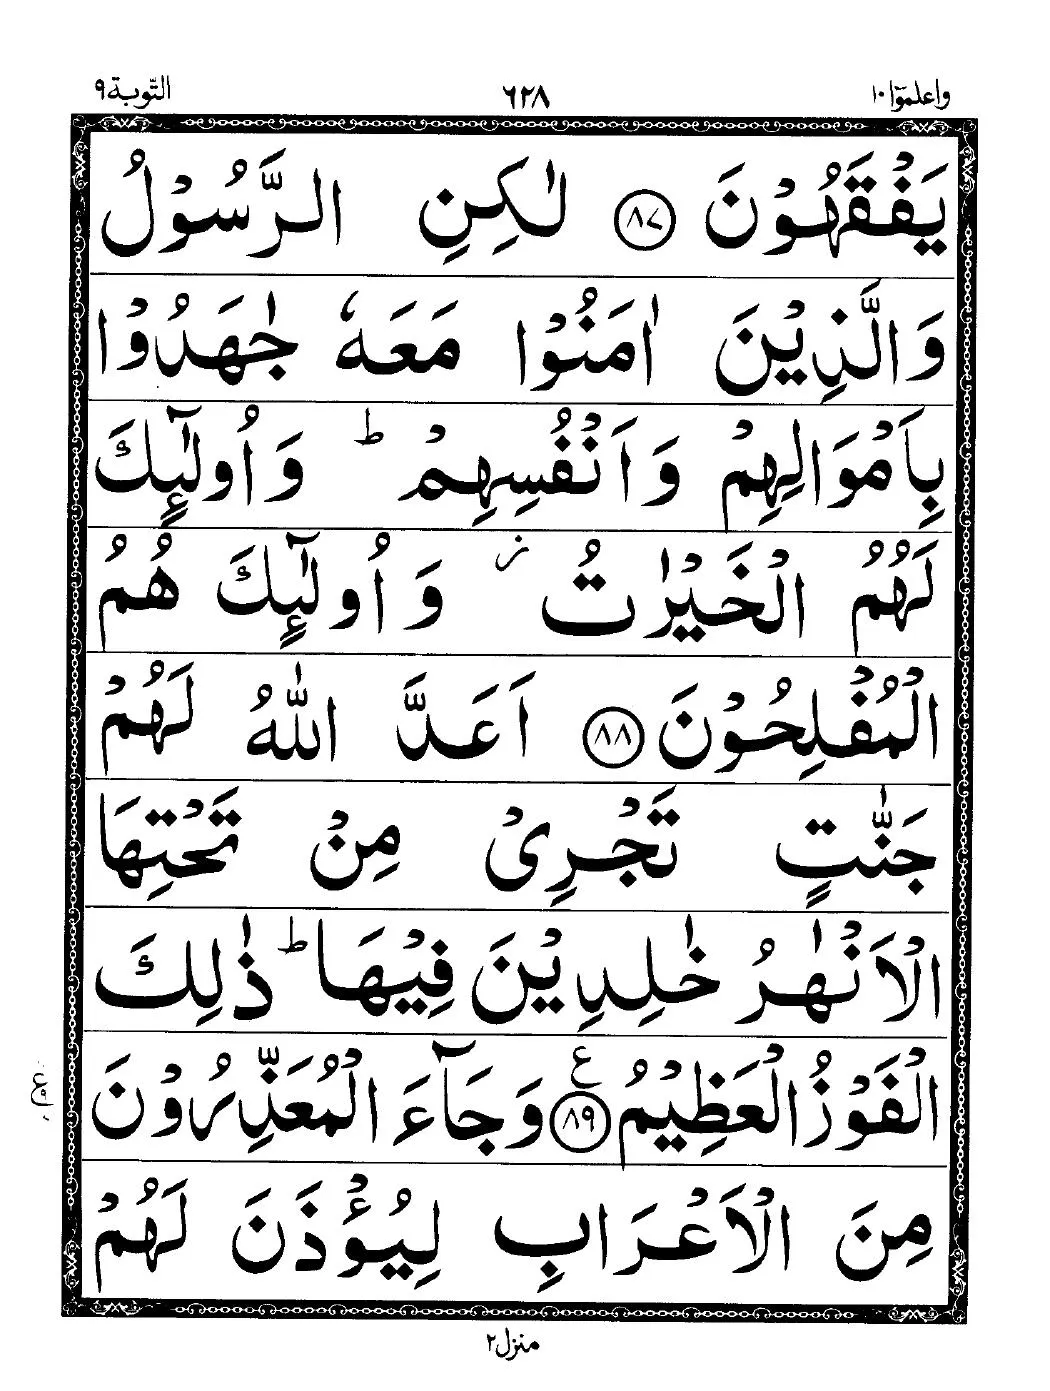 واعلموٓا ١٠ ٦٢٨ التّوبة ٩
يَفْقَهُوْنَ ﴿٨٧﴾ لٰكِنِ الرَّسُوْلُ
وَالَّذِيْنَ اٰمَنُوْا مَعَهٗ جٰهَدُوْا
بِاَمْوَالِهِمْ وَاَنْفُسِهِمْ ؕ وَاُولٰٓئِكَ
لَهُمُ الْخَيْرٰتُ ز وَاُولٰٓئِكَ هُمُ
الْمُفْلِحُوْنَ ﴿٨٨﴾ اَعَدَّ اللّٰهُ لَهُمْ
جَنّٰتٍ تَجْرِىْ مِنْ تَحْتِهَا
الْاَنْهٰرُ خٰلِدِيْنَ فِيْهَا ؕ ذٰلِكَ
الْفَوْزُ الْعَظِيْمُ ﴿٨٩﴾ ع وَجَآءَ الْمُعَذِّرُوْنَ
مِنَ الْاَعْرَابِ لِيُؤْذَنَ لَهُمْ
منزل ٢